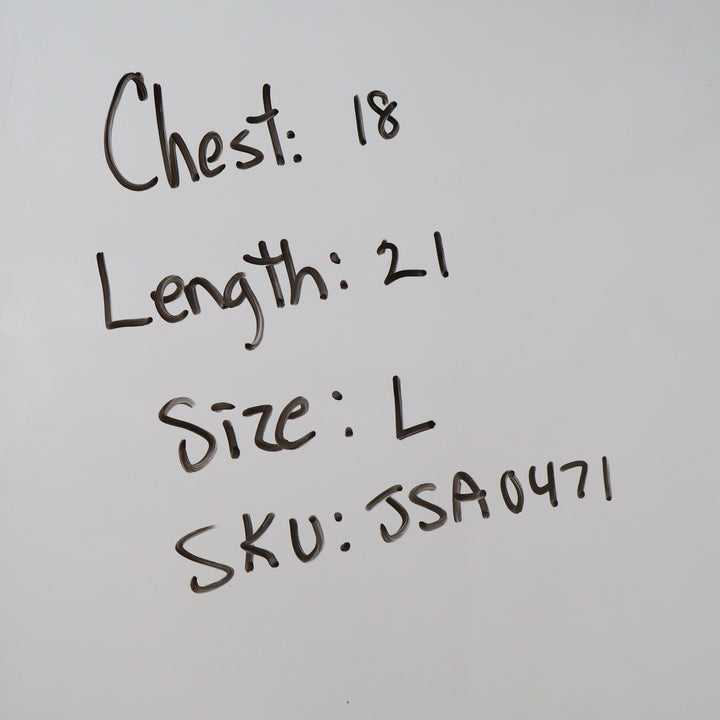 Chest: 18
Length: 21
Size: L
SKU: JSA0471